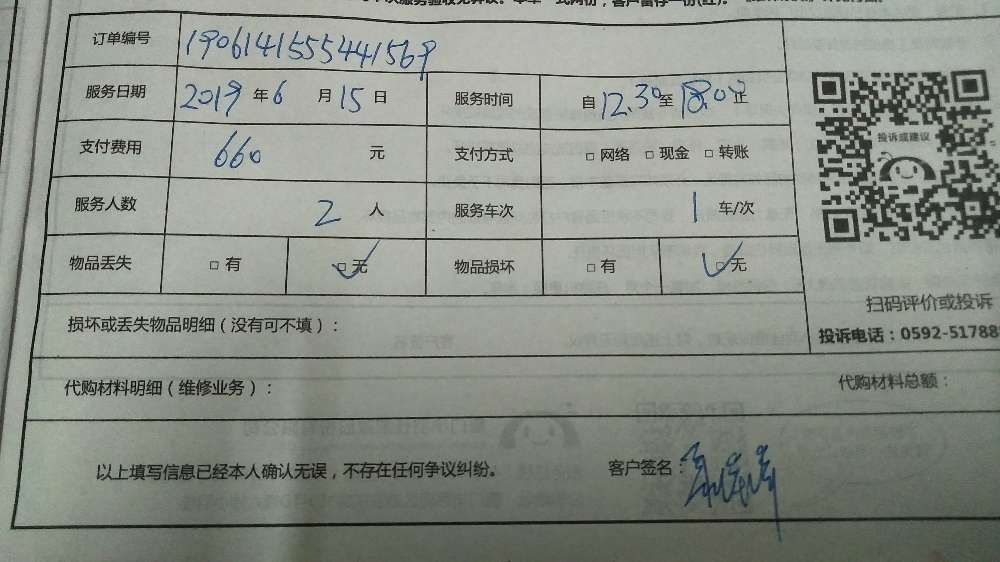 服务验收无异议。本单一式两份，客户留存一份(红)。
订单编号 1906141555441569
服务日期 2019 年 6 月 15 日 服务时间 自 12.30 至 18.00 止
支付费用 660 元 支付方式 □ 网络 □ 现金 □ 转账
服务人数 2 人 服务车次 1 车/次
物品丢失 □ 有 ☑ 无 物品损坏 □ 有 ☑ 无
损坏或丢失物品明细（没有可不填）：
代购材料明细（维修业务）： 代购材料总额：
以上填写信息已经本人确认无误，不存在任何争议纠纷。 客户签名：
投诉或建议
扫码评价或投诉
投诉电话：0592-51788